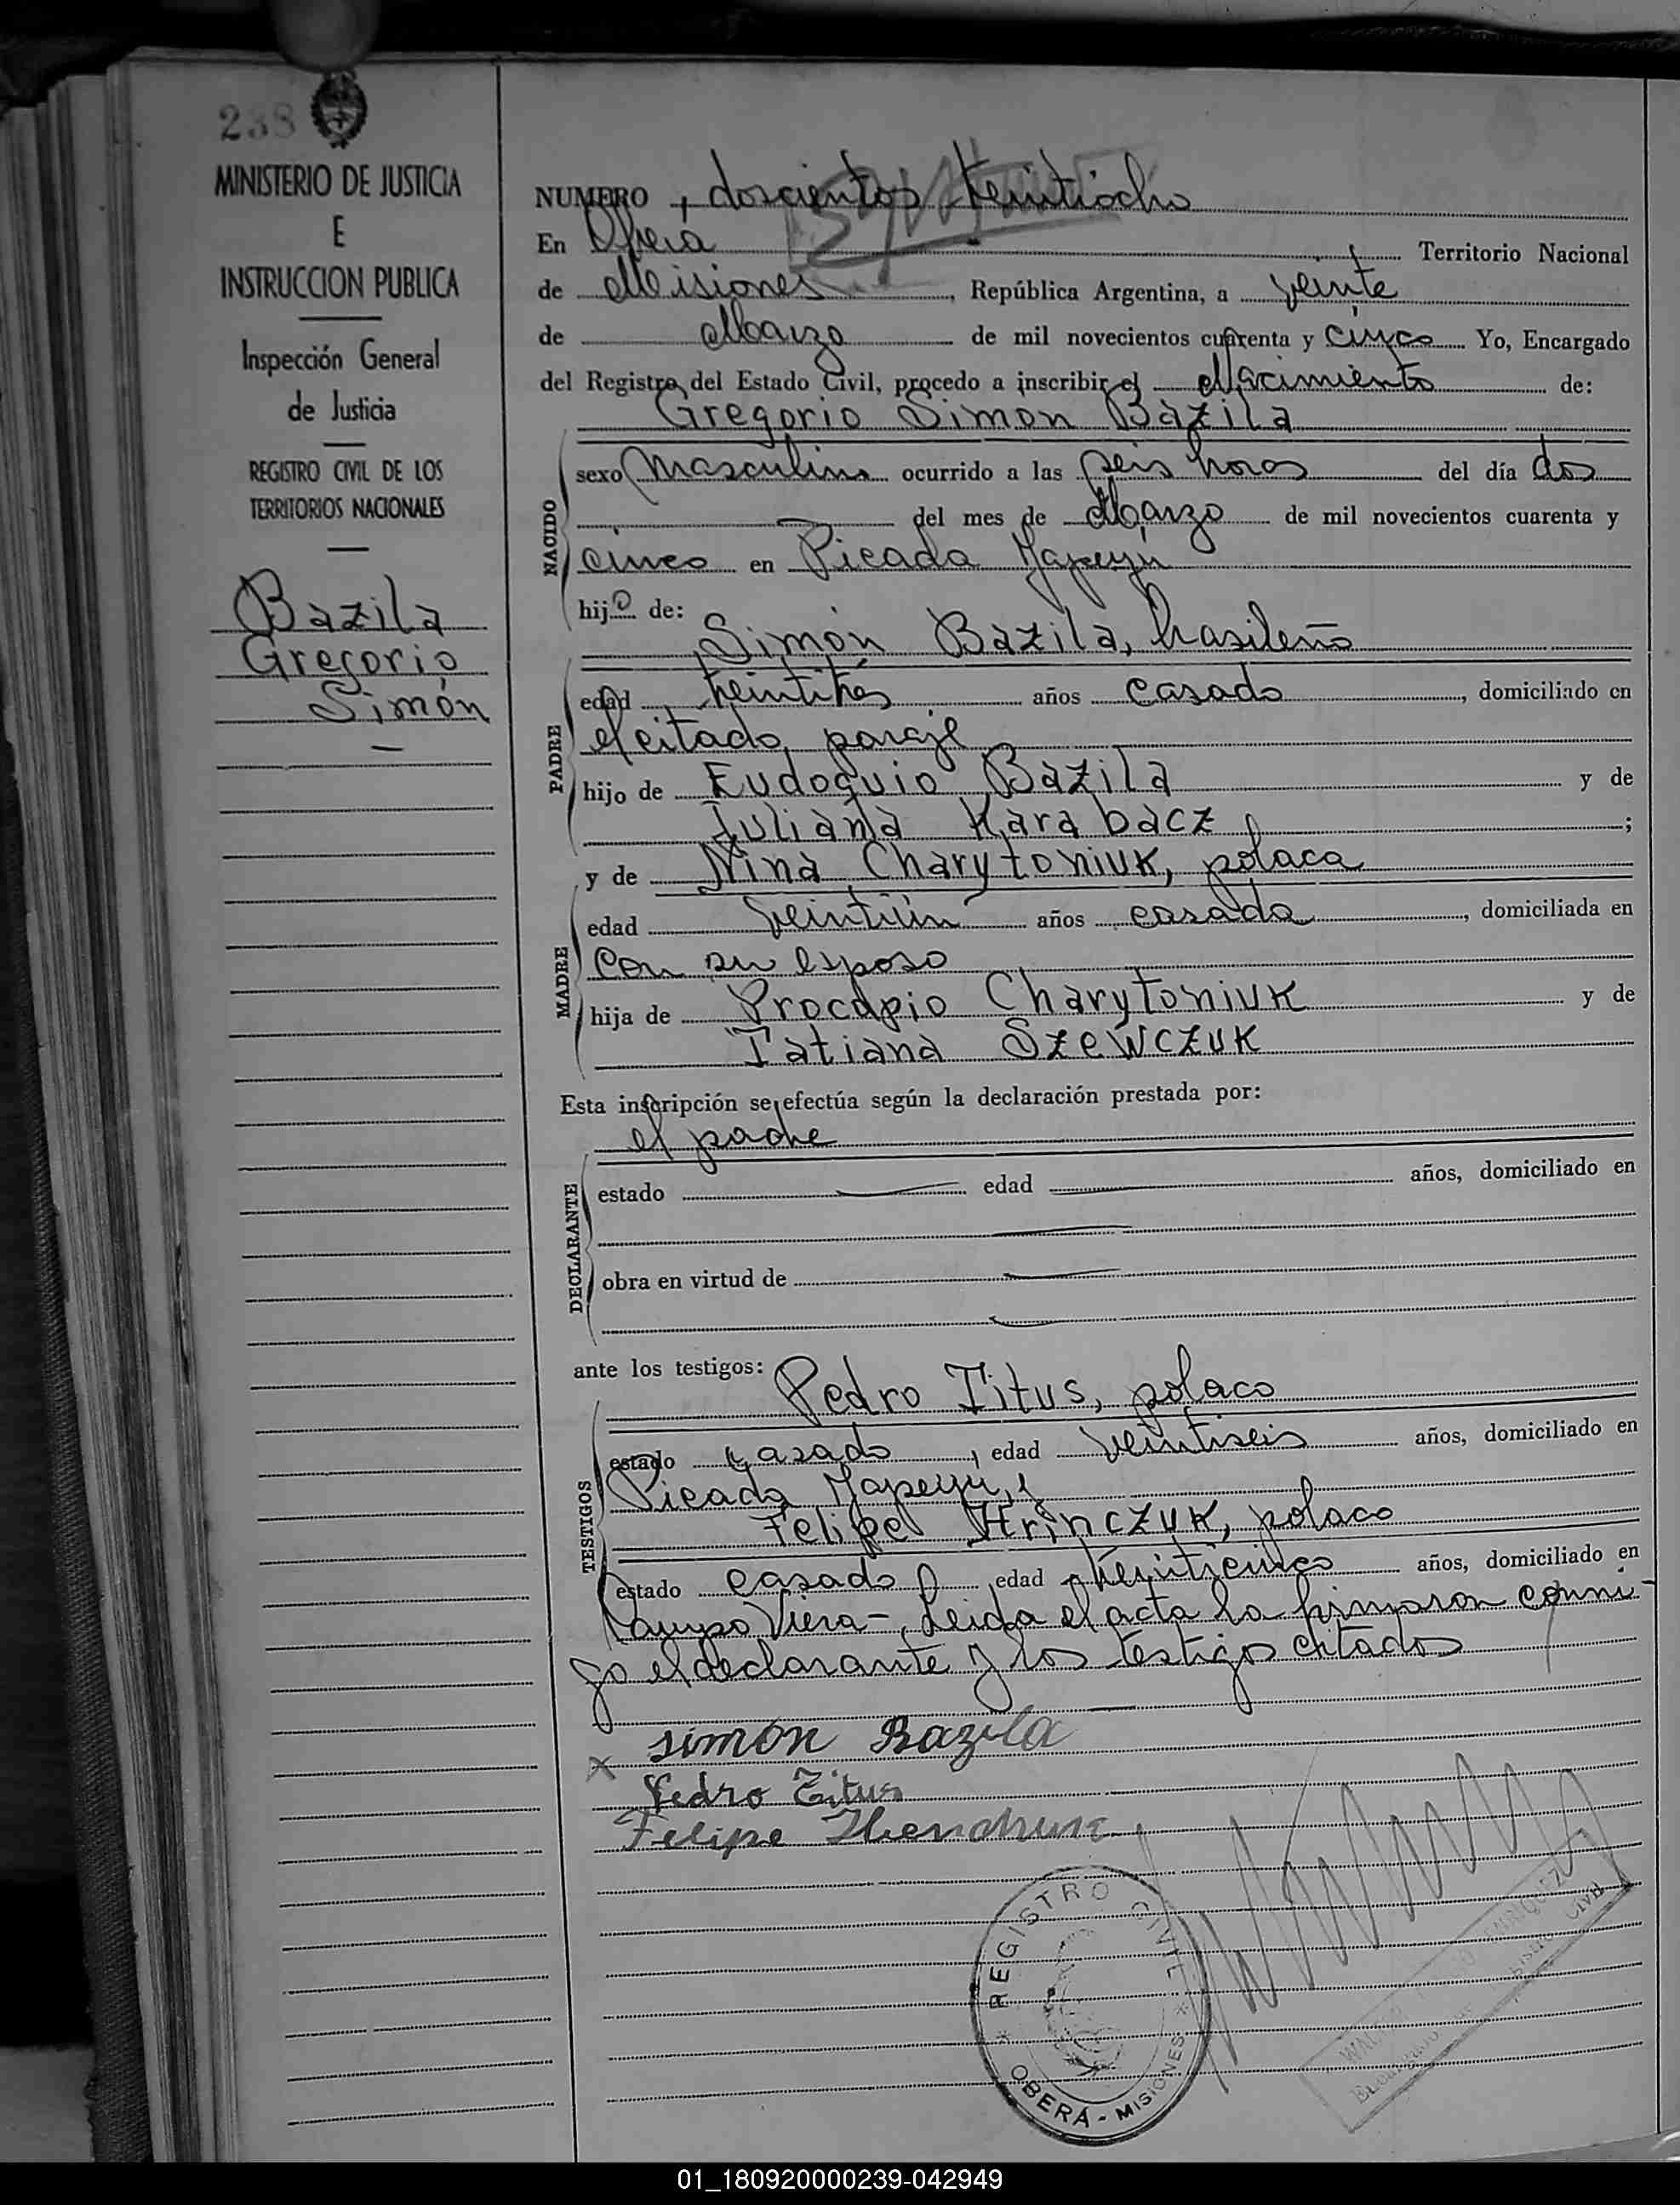 238
MINISTERIO DE JUSTICIA
E
INSTRUCCION PUBLICA
Inspección General
de Justicia
REGISTRO CIVIL DE LOS
TERRITORIOS NACIONALES
Bazila
Gregorio
Simón
NUMERO, doscientos treintiocho
En Oberá Territorio Nacional
de Misiones, República Argentina, a veinte
de Marzo de mil novecientos cuarenta y cinco Yo, Encargado
del Registro del Estado Civil, procedo a inscribir el Nacimiento de:
Gregorio Simon Bazila
NACIDO
sexo Masculino ocurrido a las seis horas del día dos
del mes de Marzo de mil novecientos cuarenta y
cinco en Picada Yapeyú
hijo de:
Simón Bazila, brasileño
PADRE
edad treintitres años casado, domiciliado en
el citado paraje
hijo de Eudoquio Bazila y de
Juliana Karabacz;
y de Nina Charytoniuk, polaca
MADRE
edad veintiún años casada, domiciliada en
con su esposo
hija de Procopio Charytoniuk y de
Tatiana Szewczuk
Esta inscripción se efectúa según la declaración prestada por:
el padre
DECLARANTE
estado edad años, domiciliado en
obra en virtud de
ante los testigos: Pedro Titus, polaco
TESTIGOS
estado casado, edad veintiseis años, domiciliado en
Picada Yapeyú, y
Felipe Hrinczuk, polaco
estado casado, edad treinticinco años, domiciliado en
Campo Viera-, Leida el acta la firmaron conmi-
go el declarante y los testigos citados
x simón Bazila
Pedro Titus
Felipe
REGISTRO CIVIL
OBERÁ - MISIONES
01_180920000239-042949